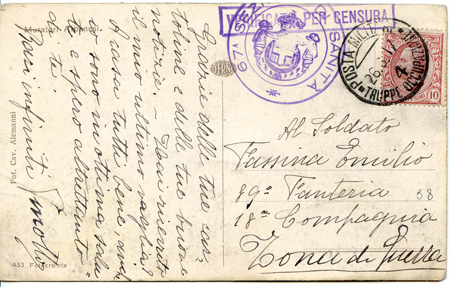 Muratori Alemanni
Fot. Cav. Alemanni
453 Fotocromia
VERIFICATO PER CENSURA
6ª SEZ SANITÀ
POSTA MILITARE
TRUPPE OCCUPAZ
4
10
Grazie delle tue car-
toline e delle tue buone
notizie. Hai ricevuto
il mio ultimo vaglia?
A casa tutti bene, anch'
io sono in ottima salu-
te e spero altrettanto
di te.
Baci infiniti
Al Soldato
Fassina Emilio
89ª Fanteria
18ª Compagnia
Zona di Guerra
88